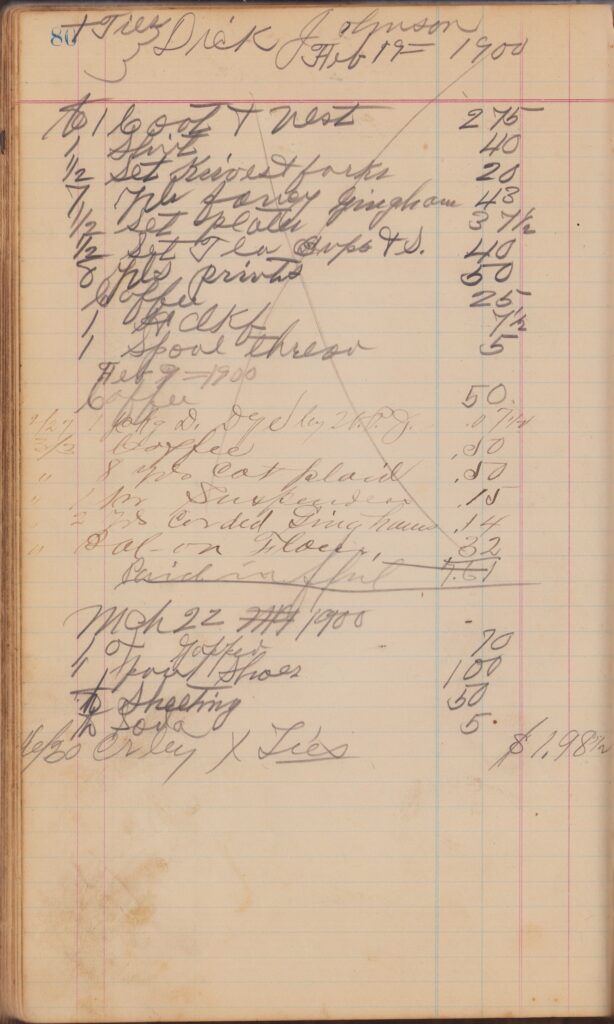 80 + Ties Dick Johnson
Feb 19 = 1900
to 1 Coat + Vest 2 75
1 Shirt 40
1/2 Set Knives + forks 20
7 yds fancy Gingham 43
1/2 Set plates 37 1/2
1/2 Set Tea Cups + S. 40
8 yds prints 50
Coffee 25
1 Hdkf 7 1/2
1 Spool thread 5
Feb 9 = 1900
Coffee 50
2/27 1 pkg D. Dye by .07 1/2
3/3 Coffee .50
" 8 yds Cot plaid .50
" 1 pr Suspenders .15
2 yds Corded Ginghams .14
" Bal- on Flour, 32
Paid in full 7.61
Mch 22 1900
1 Coffee 70
1 pair Shoes 100
to Sheeting 50
to Soda 5
6/30 Cr by X Ties $1.98 1/2